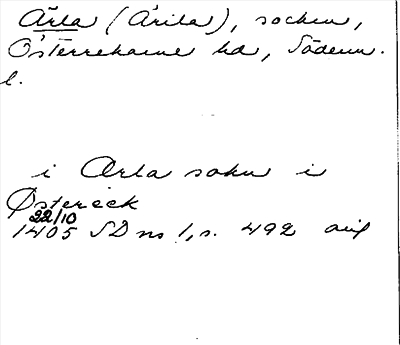 Ärla (Ärila), socken,
Österrekarne hd, Söderm.
l.
i Ærla sokn i
Østereck
22/10
1405 SD ns 1, s. 492 avf